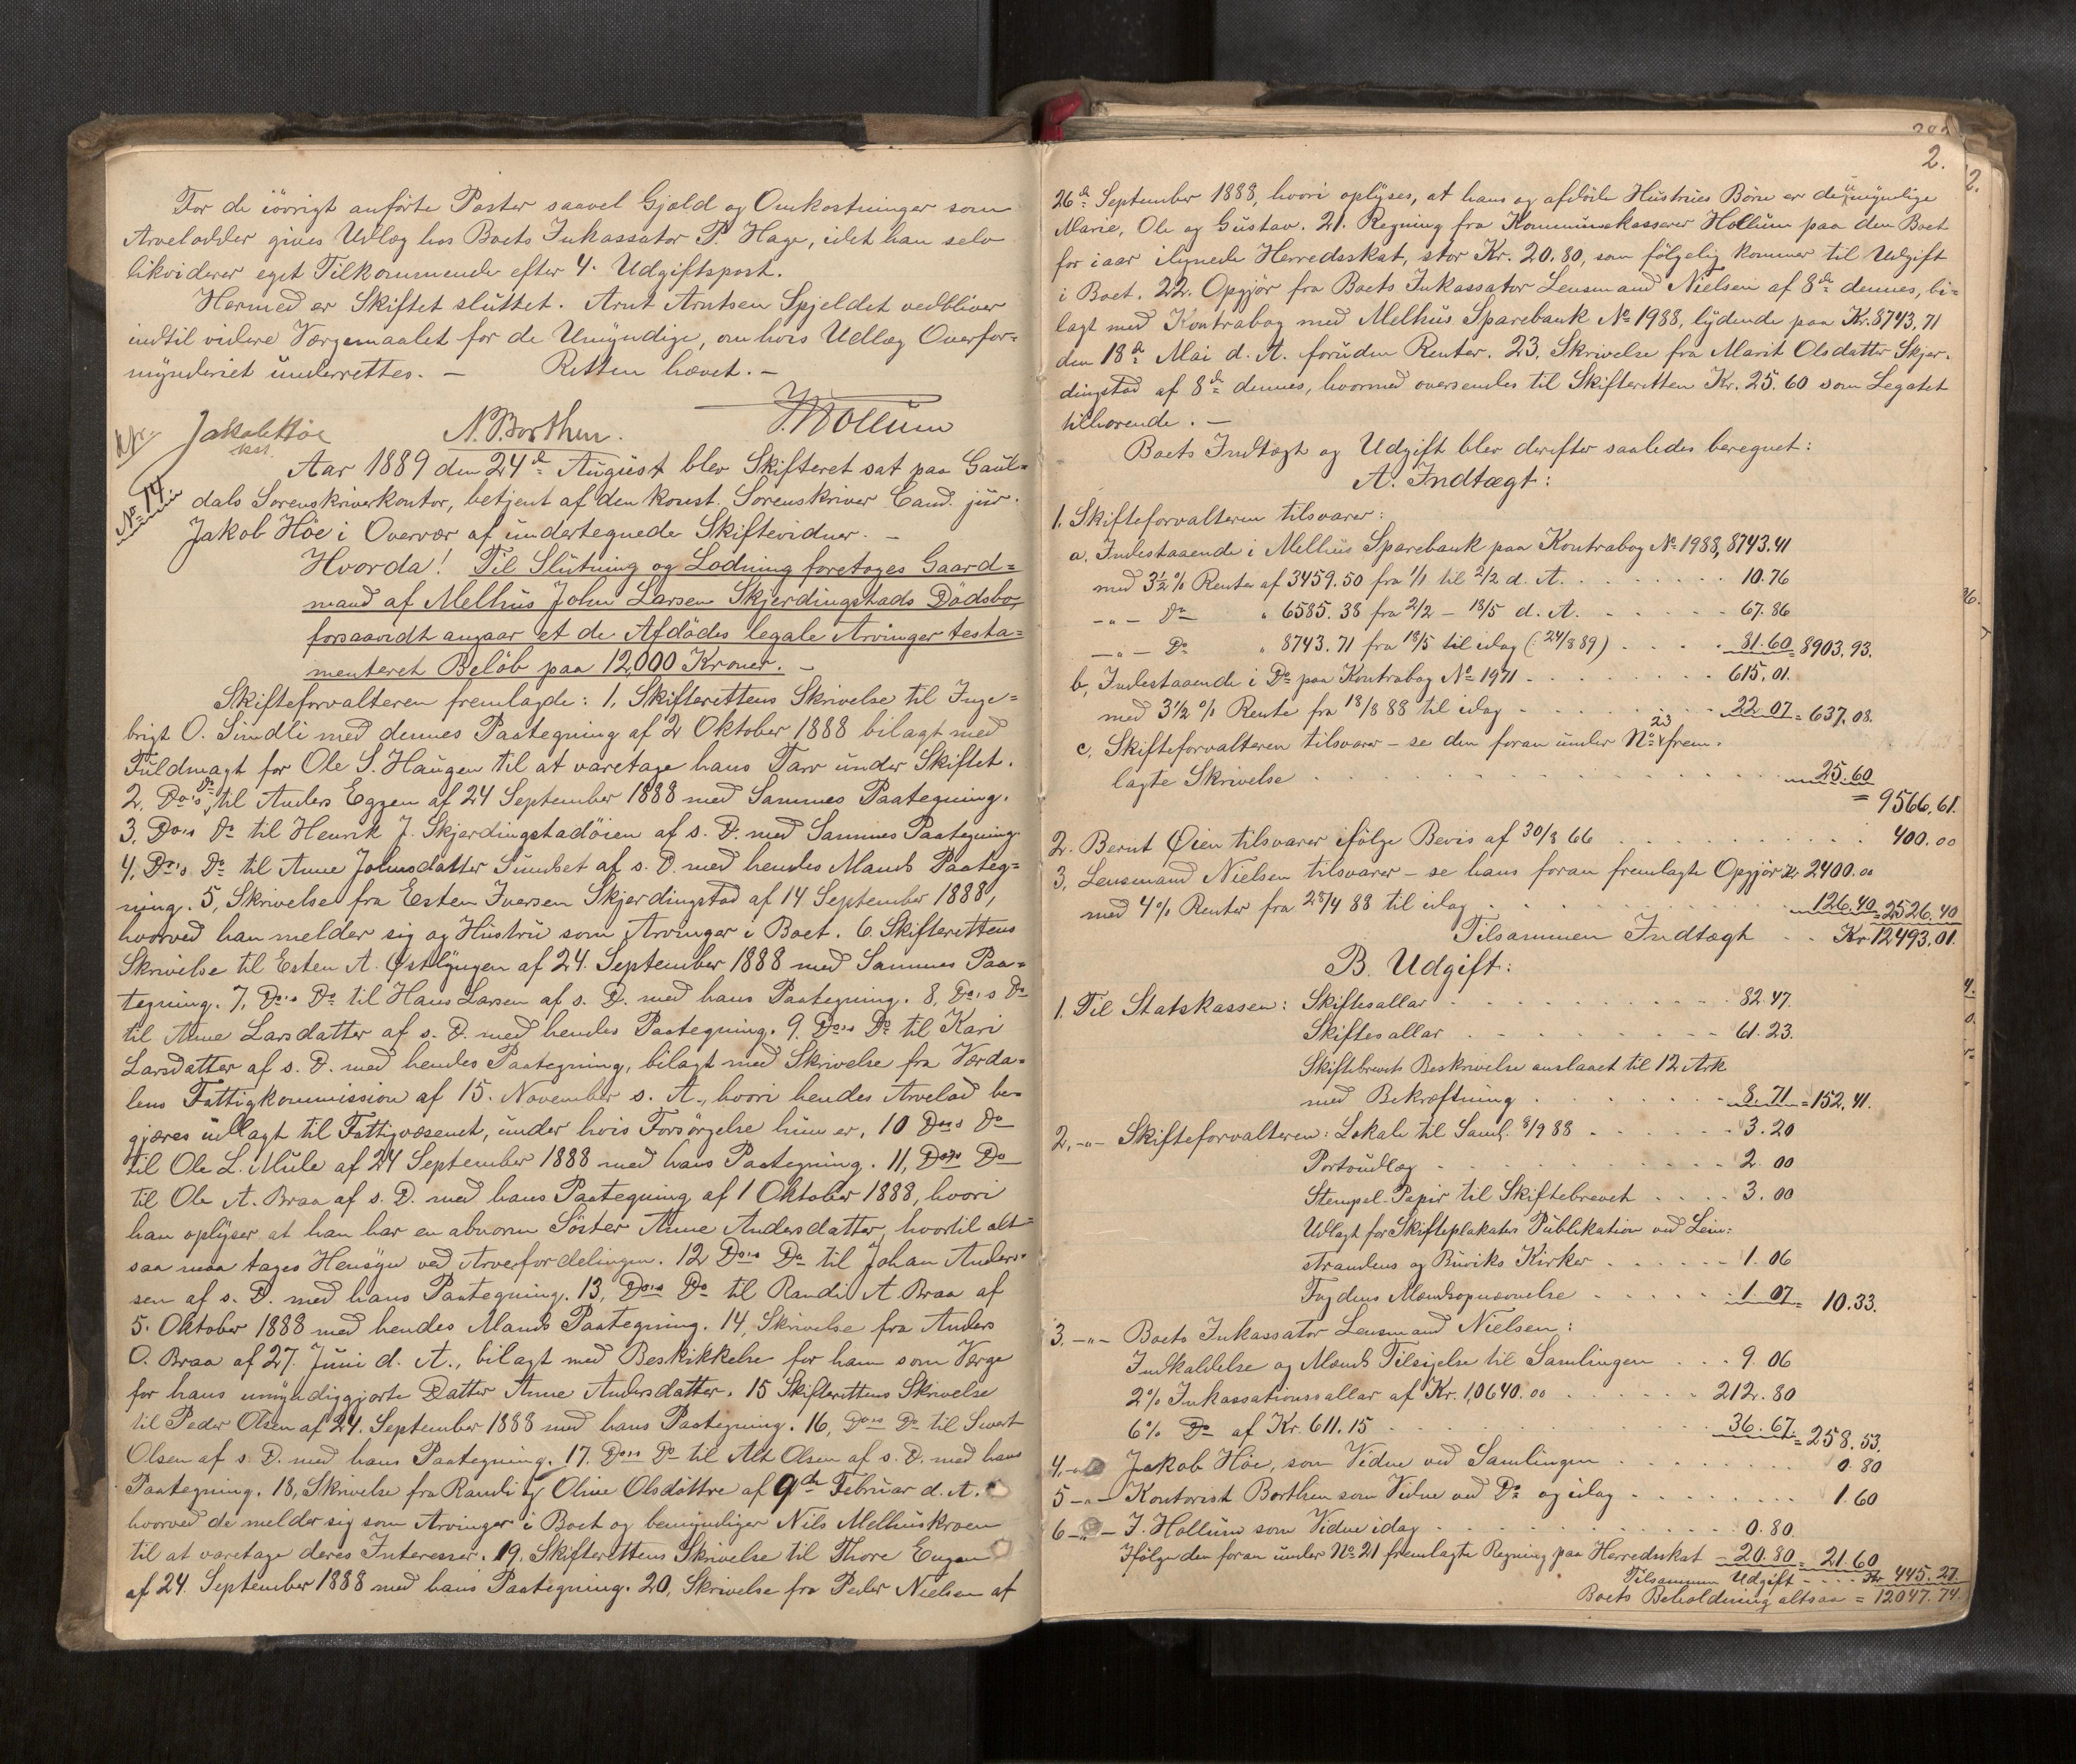 For de iövrigt anförte Poster saavel Gjæld og Omkostninger som
Arvelodder gives Udlæg hos Boets Inkassator P. Hage, idet han selv
likviderer eget Tilkommende efter 4. Udgiftspost.
Hermed er Skiftet sluttet. Arnt Arntsen Spjeldet vedbliver
indtil videre Værgemaalet for de Umyndige, om hvis Udlæg Overfor=
mynderiet underrettes. — Retten hævet. —
Jakob Höe
kst.
N. Borthen.
J. Hollum
No 14.
Aar 1889 den 24de August blev Skifteret sat paa Gaul=
dals Sorenskriverkontor, betjent af den konst. Sorenskriver Cand. jur.
Jakob Höe i Overvær af undertegnede Skiftevidner. —
Hvorda! Til Slutning og Lodning foretoges Gaard=
mand af Melhus John Larsen Skjerdingstads Dödsbo,
forsaavidt angaar et de Afdödes legale Arvinger testa=
menteret Belöb paa 12,000 Kroner. —
Skifteforvalteren fremlagde: 1, Skifterettens Skrivelse til Inge=
brigt O. Sindli med dennes Paategning af 2 Oktober 1888 bilagt med
Fuldmagt for Ole S. Haugen til at varetage hans Tarv under Skiftet.
2, Do's Do til Anders Eggen af 24 September 1888 med Sammes Paategning.
3, Do's Do til Henrik J. Skjerdingstadöien af s. D. med Sammes Paategning
4, Do's Do til Anne Johnsdatter Sundset af s. D. med hendes Mands Paateg=
ning. 5, Skrivelse fra Esten Iversen Skjerdingstad af 14 September 1888,
hvorved han melder sig og Hustru som Arvinger i Boet. 6. Skifterettens
Skrivelse til Esten A. Østlyngen af 24. September 1888 med Sammes Paa=
tegning. 7, Do's Do til Hans Larsen af s. D. med hans Paategning. 8, Do's Do
til Anne Larsdatter af s. D. med hendes Paategning. 9. Do's Do til Kari
Larsdatter af s. D. med hendes Paategning, bilagt med Skrivelse fra Værda=
lens Fattigkommission af 15. November s. A., hvori hendes Arvelod be=
gjæres udlagt til Fattigvæsenet, under hvis Forsörgelse hun er. 10 Do's Do
til Ole L. Mule af 24 September 1888 med hans Paategning. 11, Do's Do
til Ole A. Braa af s. D. med hans Paategning af 1 Oktober 1888, hvori
han oplyser at han har en abnorm Söster Anne Andersdatter, hvortil alt=
saa maa tages Hensyn ved Arvefordelingen. 12 Do's Do til Johan Anders=
sen af s. D. med hans Paategning. 13, Do's Do til Randi A. Braa af
5. Oktober 1888 med hendes Mands Paategning. 14, Skrivelse fra Anders
O. Braa af 27. Juni d. A., bilagt med Beskikkelse for ham som Værge
for hans umyndiggjorte Datter Anne Andersdatter. 15 Skifterettens Skrivelse
til Peder Olsen af 24. September 1888 med hans Paategning. 16, Do's Do til Sivert
Olsen af s. D. med hans Paategning. 17. Do's Do til Alt Olsen af s. D. med hans
Paategning. 18, Skrivelse fra Randi og Oline Olsdöttre af 9de Februar d. A.
hvorved de melder sig som Arvinger i Boet og bemyndiger Nils Melhuskroen
til at varetage deres Interesser. 19. Skifterettens Skrivelse til Thore Eugen
af 24. September 1888 med hans Paategning. 20, Skrivelse fra Peder Nielsen af
2.
26de September 1888, hvori oplyses, at hans og afdöde Hustrus Börn er de umyndige
Marie, Ole og Gustav. 21. Regning fra Kommunekasserer Hollum paa den Boet
for iaar ilignede Herredsskat, stor Kr. 20.80, som fölgelig kommer til Udgift
i Boet. 22. Opgjör fra Boets Inkassator Lensmand Nielsen af 8de dennes, bi=
lagt med Kontrabog med Melhus Sparebank No 1988, lydende paa Kr. 8743,71
den 18de Mai d. A. foruden Renter. 23, Skrivelse fra Marit Olsdatter Skjer=
dingstad af 8de dennes, hvormed oversendes til Skifteretten Kr. 25.60 som Legatet
tilhörende. —
Boets Indtægt og Udgift blev derefter saaledes beregnet:
A. Indtægt:
1, Skifteforvalteren tilsvarer:
a. Indestaaende i Melhus Sparebank paa Kontrabog No 1988, 8743.41
med 3½% Renter af 3459.50 fra 1/1 til 2/2 d. A. 10.76
—"— Do " 6585.38 fra 2/2 — 18/5 d. A. 67.86
—"— Do " 8743.71 fra 18/5 til idag (: 24/8 89) 81.60 = 8903.93.
b, Indestaaende i Do paa Kontrabog No 1971 615.01.
med 3½% Rente fra 18/8 88 til idag 22.07 = 637.08.
c, Skifteforvalteren tilsvarer — se den foran under No 23 frem=
lagte Skrivelse 25.60
= 9566.61.
2. Bernt Øien tilsvarer ifölge Bevis af 30/8 66 400.00
3, Lensmand Nielsen tilsvarer — se hans foran fremlagte Opgjör Kr. 2400.00
med 4% Renter fra 28/4 88 til idag 126.40 = 2526.40
Tilsammen Indtægt Kr. 12493.01.
B. Udgift:
1, Til Statskassen: Skiftesallar 82.47.
Skiftesallar 61.23.
Skiftebrevets Beskrivelse anslaaet til 12 Ark
med Bekræftning 8.71 = 152.41.
2, —"— Skifteforvalteren: Lokale til Saml. 8/9 88 3.20
Portoudlæg 2.00
Stempel-Papir til Skiftebrevet 3.00
Udlagt for Skifteplakaters Publikation ved Lein=
strandens og Buviks Kirker 1.06
Fogdens Mændsopnævnelse 1.07 = 10.33.
3. —"— Boets Inkassator Lensmand Nielsen:
Indkaldelse og Mænds Tilsigelse til Samlingen 9.06
2% Inkassationssallar af Kr. 1,0640.00 212.80
6% Do af Kr. 611.15 36.67. = 258.53.
4, —"— Jakob Höe, som Vidne ved Samlingen 0.80
5 —"— Kontorist Borthen som Vidne ved Do og idag 1.60
6 —"— J. Hollum som Vidne idag 0.80.
Ifölge den foran under No 21 fremlagte Regning paa Herredsskat 20.80 = 21.60
Tilsammen Udgift Kr 445.27.
Boets Beholdning altsaa = 12047.74.